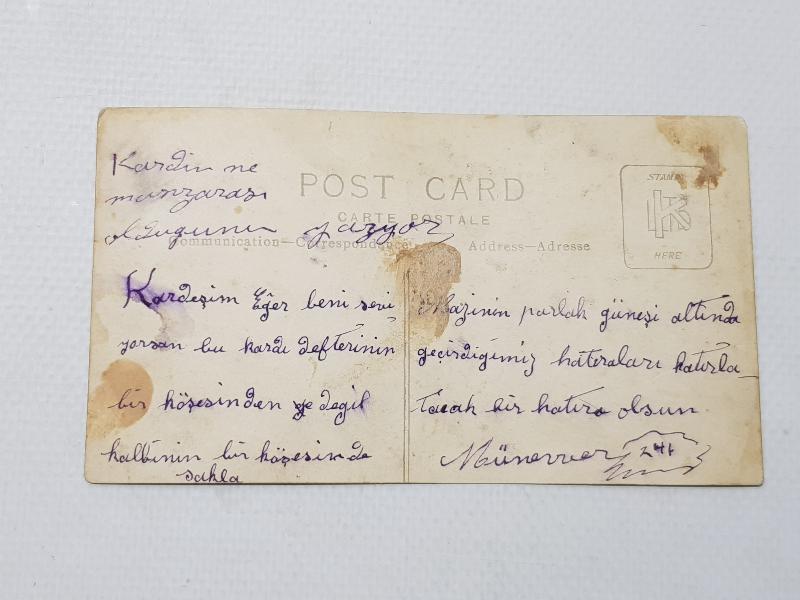 Kardin ne
manzarası
olduğunu yazıyor
POST CARD
CARTE POSTALE
Communication—Correspondance
Address—Adresse
STAMP
HERE
Kardeşim Eğer beni sevi
yorsan bu kardı defterinin
bir köşesinden ye degil
kalbinin bir köşesinde
sakla
Mazinin parlak güneşi altında
geçirdiğimiz hatıraları hatırla_
tacak bir hatıra olsun
Münevver
241